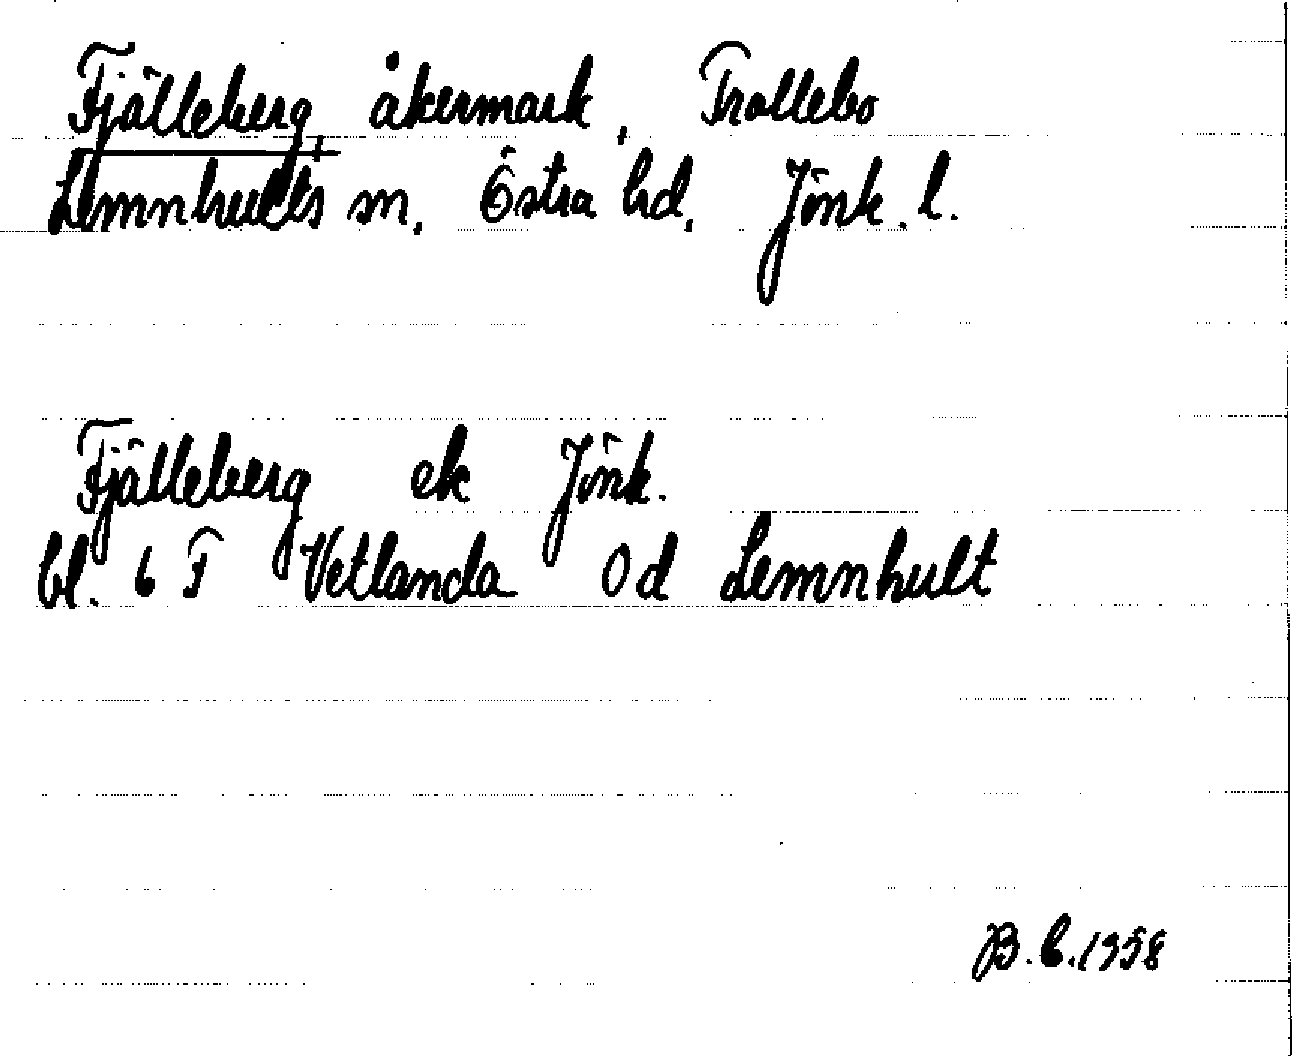 Fjälleberg, åkermark, Trollebo
Lemnhults sn. Östra hd. Jönk. l.
Fjälleberg ek Jönk.
bl. 6 F Vetlanda Od Lemnhult
B. C. 1958